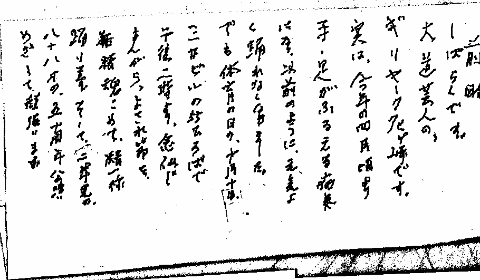 前略
しばらくです。
大道芸人の、
ギリヤーク尼ヶ崎です。
実は、今年の四月頃から
手・足がふるえる病気
になり、以前のように、元気よ
く踊れなくなりました。
でも体育の日の、十月十日
三井ビルの
午後二時より、念仏じ
ょんがら、よされ節を
鎮魂こめて、精一杯
踊ります。そして、
八十八才の、五十周年公演
めざして、頑張ります